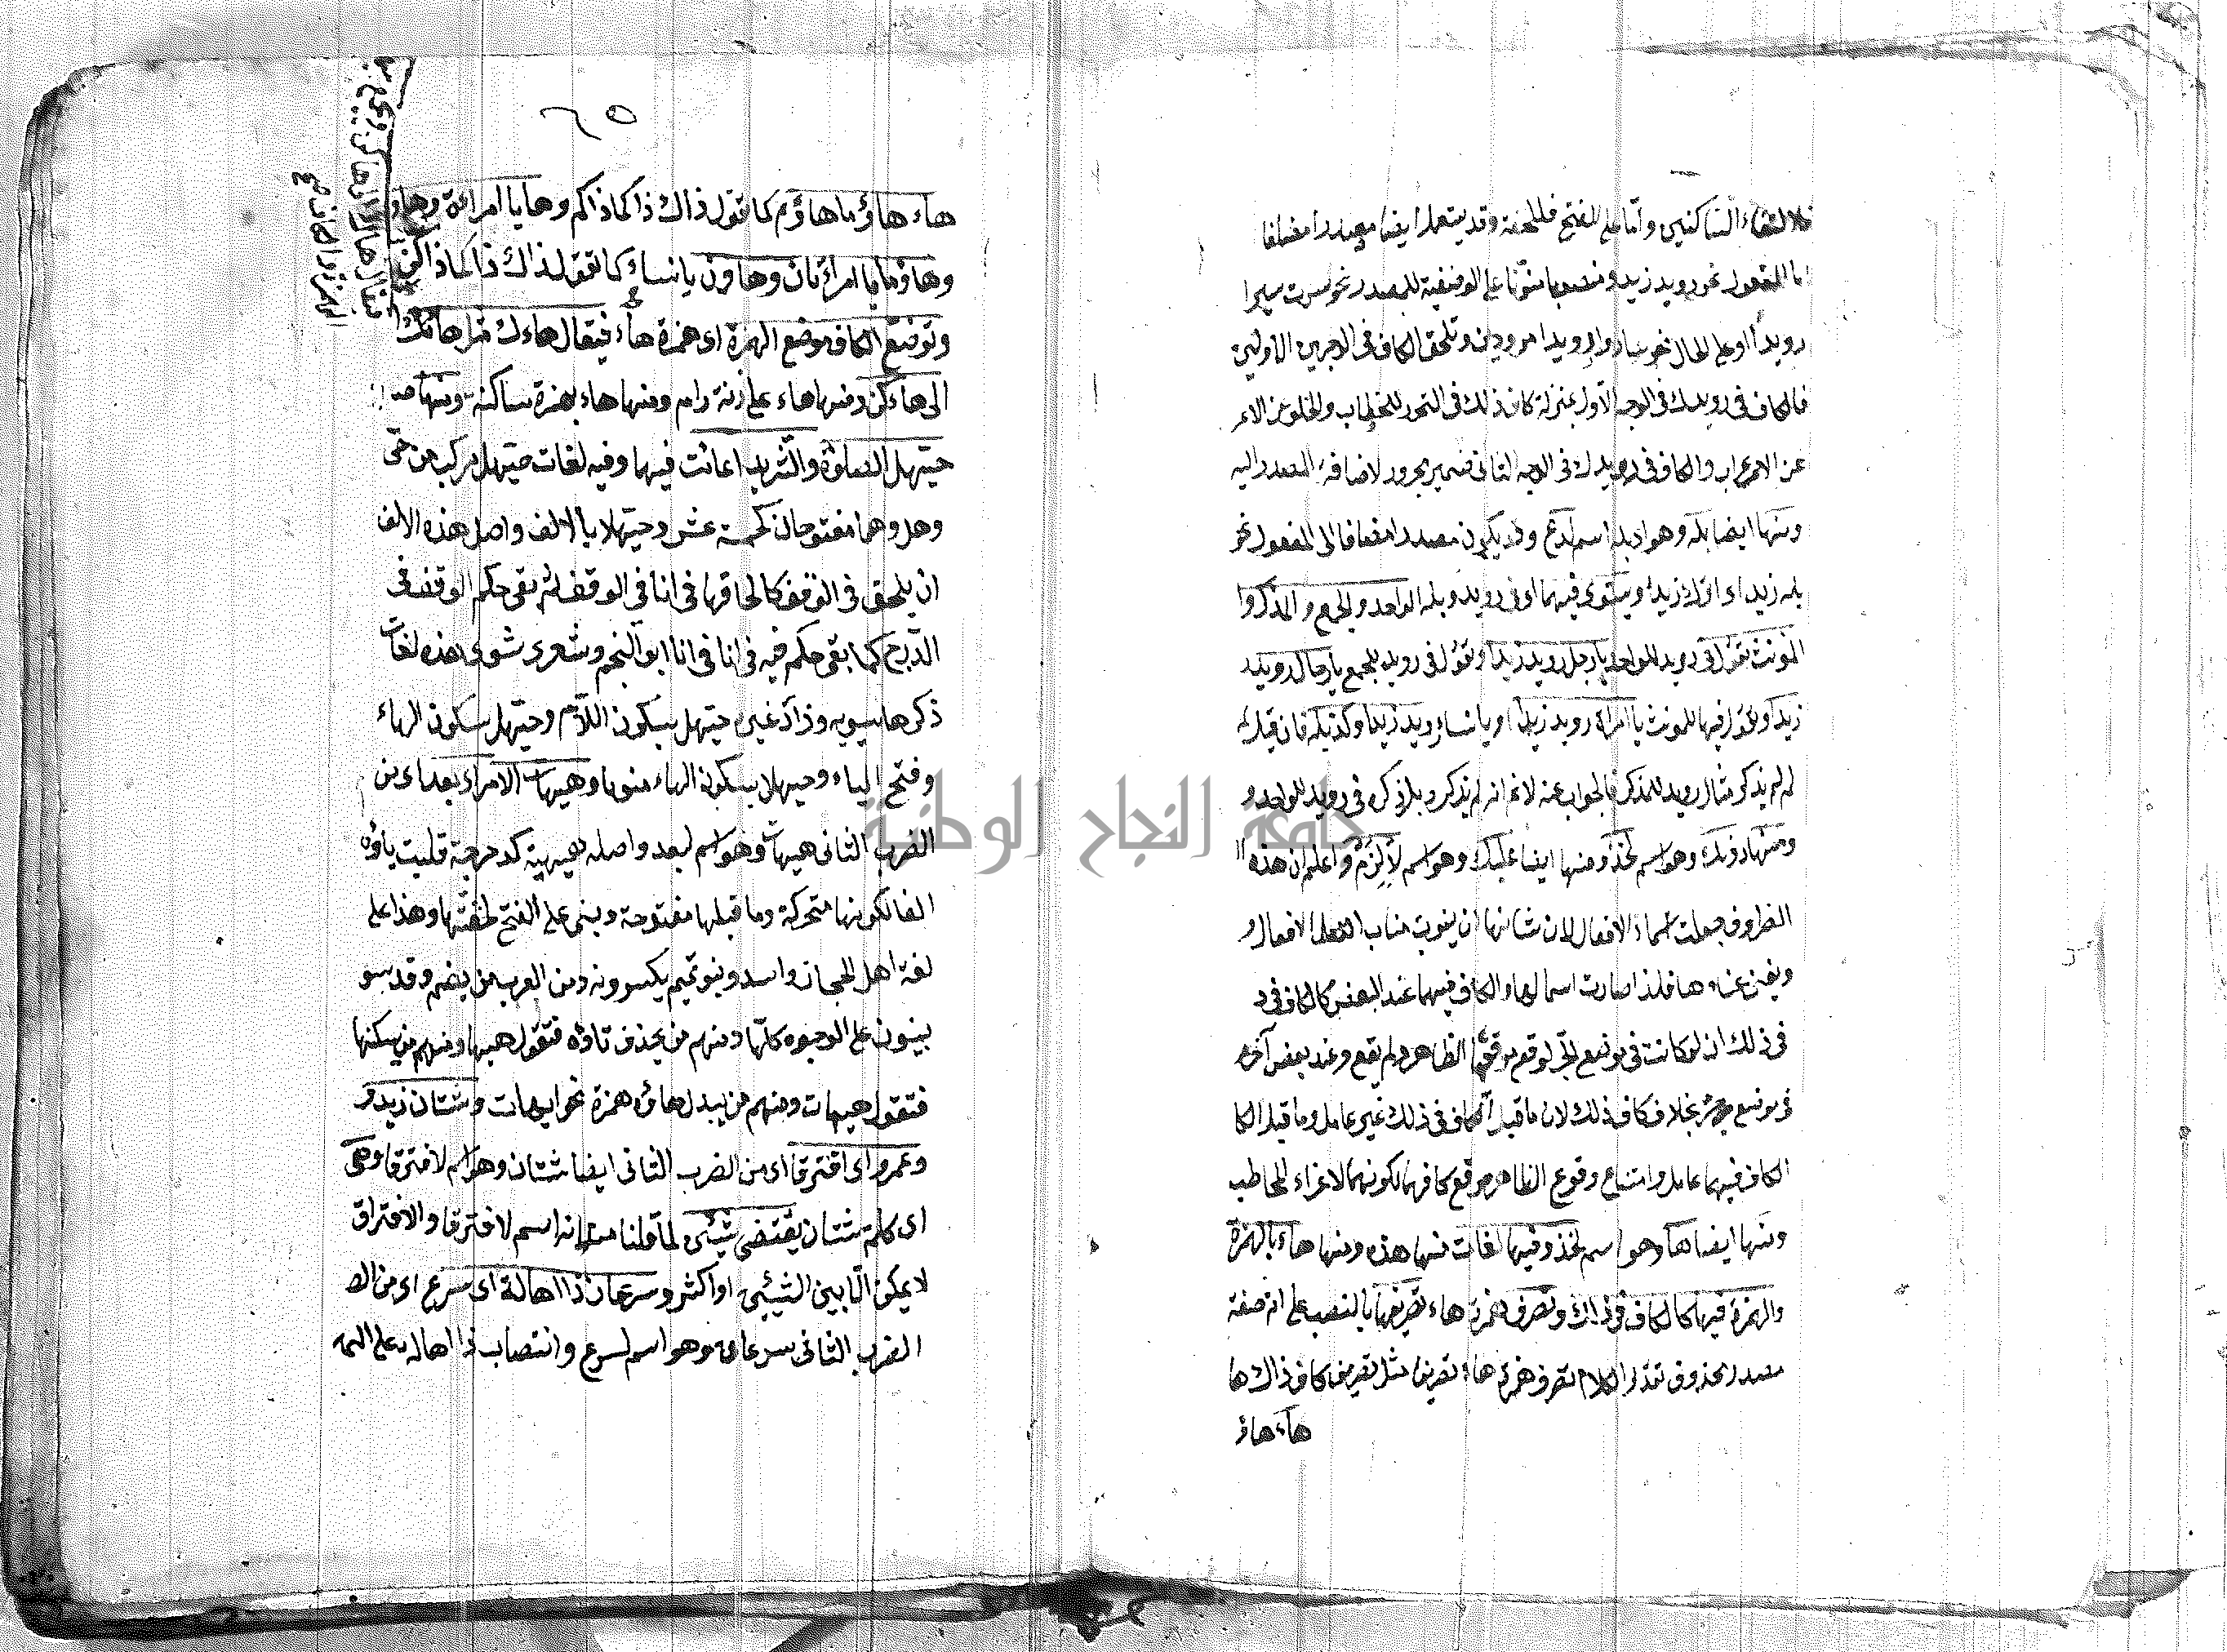 فلالتقاء الساكنين وأما على الفتح فللخفة وقد يستعمل ايضا مصدرا مضافا
الى المفعول نحو رويد زيد ومنصوبا منونا على الوصفية للمصدر نحو سرت سيرا
رويدا او على الحال نحو ساروا رويدا اى مرودين وتلحق الكاف فى الوجهين الاولين
فالكاف فى رويدك فى الوجه الاول بمنزلة كاف ذلك فى التجرد للخطاب والخلو عن الاعر
عن الاعراب والكاف فى رويدك فى الوجه الثانى ضمير مجرور لاضافة المصدر اليه
ومنها ايضا بله وهو اى بله اسم لدع وقد يكون مصدرا مضافا الى المفعول نحو
بله زيد اى اترك زيدا ويستوى فيهما اى فى رويد وبله الواحد والجمع والمذكر وا
المونث تقول فى رويد للواحد يا رجل رويد زيدا وتقول فى رويد للجمع يا رجال رويد
زيدا وتقول فيها للمونث يا امراة رويد زيدا ويا نساء رويد زيدا وكذا بله فان قيل
لم لم يذكر مثال رويد للمذكر فالجواب عنه لا نم انه لم يذكر وبل ذكره فى رويد للواحد و
ومنها دونك وهو اسم لخذ ومنها ايضا عليك وهو اسم لالزم واعلم ان هذه ال
الظروف جعلت اسماء الافعال لان شانها ان ينوب مناب الافعال و
ويغنى غناءها فلذا صارت اسما لها والكاف فيهما عند البعض كالكاف فى
فى ذلك انه لو كانت فى موضع الجر لوقع موقعها الظاهر ولم يقع وعند بعض آخر
فى موضع جر بخلاف كاف ذلك لان ما قبل الكاف فى ذلك غير عامل وما قبل الكا
الكاف فيهما عامل وامتناع وقوع الظاهر موقع كافهما لكونهما لاغراء المخاطب
ومنها ايضا ها وهو اسم لخذ وفيها لغات منها هذه ومنها هاء بالهمزة
والهمزة فيها كالكاف فى ذاك وتصرف همزة هاء تصريفها بالنصب على انه صفة
مصدر محذوف تقدير الكلام تصرف همزة هاء تصريفا مثل تصريف كاف ذاك ها
هاء هاؤ
٦٥
هاء هاؤما هاؤم كما تقول ذاك ذاكما ذاكم وها يا امراة وهاء
وهاؤما يا امرأتان وهاون يا نساء كما تقول ذاك ذاكما ذاكن
وتوضع الكاف موضع الهمزة اى همزة هاء فيقال هاءك هاءكما
الى هاءكن ومنها هاء على زنة رام ومنها هاء بهمزة ساكنة ومنها
حيهل الصلوة والثريد اى ائت فيهما وفيه لغات حيهل مركب من حى
وهل وهما مفتوحان كخمسة عشر وحيهلا بالالف واصل هذه الالف
ان يلحق فى الوقف كالحاقها فى انا فى الوقف ثم بقى حكم الوقف فى
الدرج كما بقى حكم فيه فى انا فى انا ابو النجم وشعرى شعرى هذه لغات
ذكرها سيبويه وزاد غيره حيهل بسكون اللام وحيهل بسكون الهاء
وفتح الياء وحيهلا بسكون الهاء منونا وهيهات الامر اى بعد اى من
الضرب الثانى هيهات وهو اسم لبعد واصله هيهية كدحرجة قلبت ياؤه
الفا لكونها متحركة وما قبلها مفتوحة وبنى على الفتح لخفتها وهذا على
لغة اهل الحجاز واسد وبنو تميم يكسرونه ومن العرب من يضم وقد
ينون على الوجوه كلها ومنهم من يحذف تاؤه فتقول هيها ومنهم من يسكنها
فتقول هيهات ومنهم من يبدل هاؤه همزة نحو ايهات وشتان زيد و
وعمرو اى افترقا اى من الضرب الثانى ايضا شتان وهو اسم لافترقا وهى
اى كلمة شتان يقتضى شيئين لما قلنا من انه اسم لافترقا والافتراق
لا يمكن الا بين الشيئين او اكثر وسرعان ذا اهالة اى سرع اى من الض
الضرب الثانى سرعان وهو اسم لسرع وانتصاب ذا اهالة على التمي